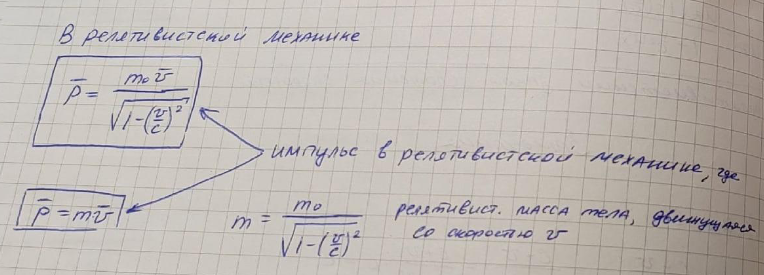 В релятивистской механике
p̅ = m₀v̅ / √(1-(v/c)²)
импульс в релятивистской механике, где
p̅ = mv̅
m = m₀ / √(1-(v/c)²) релятивист. масса тела, движущаяся
со скоростью v